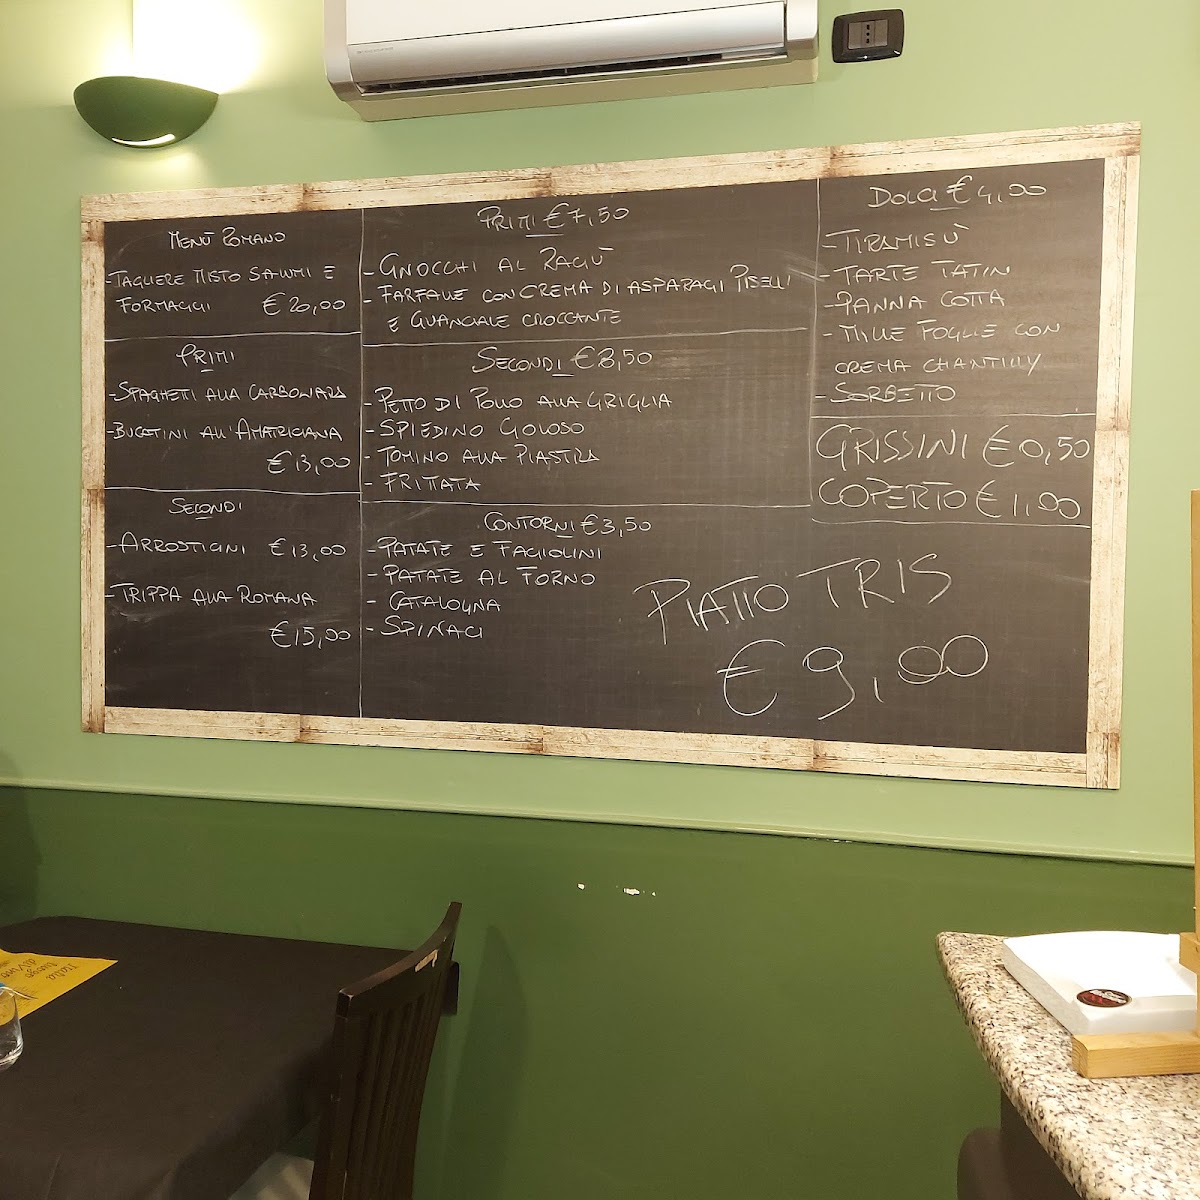 MENÙ ROMANO
-TAGLIERE MISTO SALUMI E
FORMAGGI €20,00
PRIMI
-SPAGHETI ALLA CARBONARA
-BUCATINI ALL'AMATRICIANA
€13,00
SECONDI
-ARROSTICINI €13,00
-TRIPPA ALLA ROMANA
€15,00
PRIMI €7,50
-GNOCCHI AL RAGÙ
-FARFALLE CON CREMA DI ASPARAGI PISELLI
E GUANCIALE CROCCANTE
SECONDI €8,50
-PETTO DI POLLO ALLA GRIGLIA
-SPIEDINO GOLOSO
-TOMINO ALLA PIASTRA
-FRITTATA
CONTORNI €3,50
-PATATE E FAGIOLINI
-PATATE AL FORNO
-CATALOGNA
-SPINACI
DOLCI €4,00
-TIRAMISÙ
-TARTE TATIN
-PANNA COTTA
-MILLE FOGLIE CON
CREMA CHANTILLY
-SORBETTO
GRISSINI €0,50
COPERTO €1,00
PIATTO TRIS
€9,00